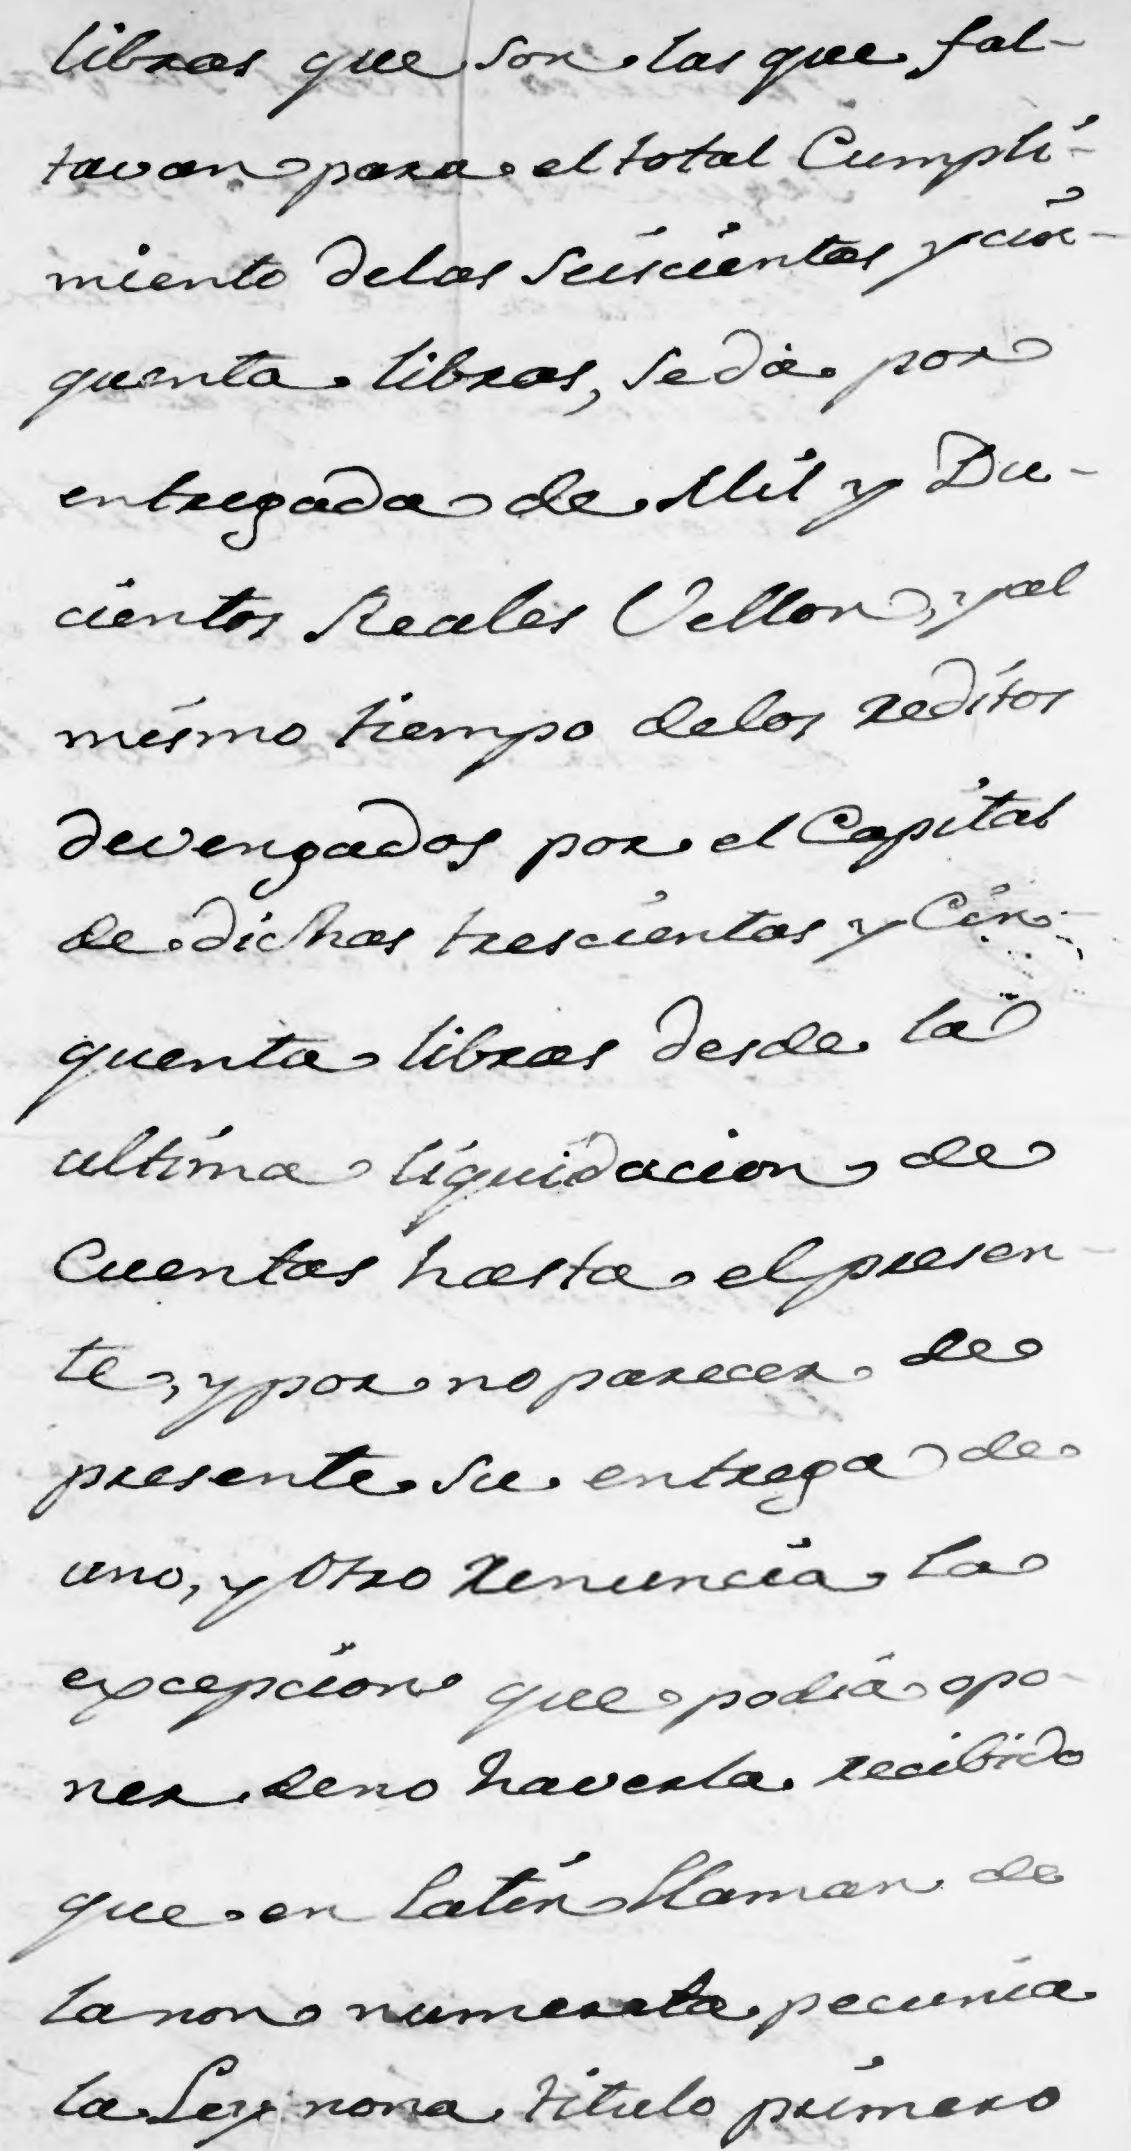 libras que son las que fal-
tavan para el total Cumpli-
miento delas Seiscientas y cin-
quenta libras, se dà por
entregada de Mil y Du-
cientos Reales Vellon, y al
mismo tiempo delos reditos
devengados por el Capital
de dichas trescientas y Cin-
quenta libras desde la
ultima liquidacion de
Cuentas hasta el presen-
te, y por no parecer de
presente su entrega de
uno, y otro renuncia la
excepcion que podia opo-
ner deno haverla recibido
que en latin llaman de
la non numerata pecunia
la Ley nona titulo primero